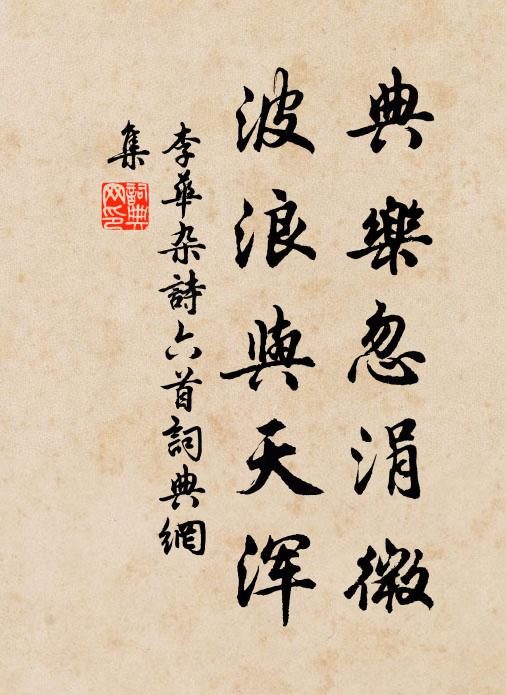 典樂忽涓微
波浪與天浑
李華杂詩六首詞典網
集
詞典網印